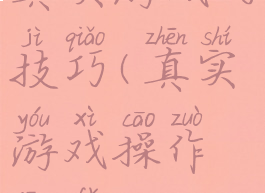 jì qiǎo zhēn shí
技巧(真实
yóu xì cāo zuò
游戏操作